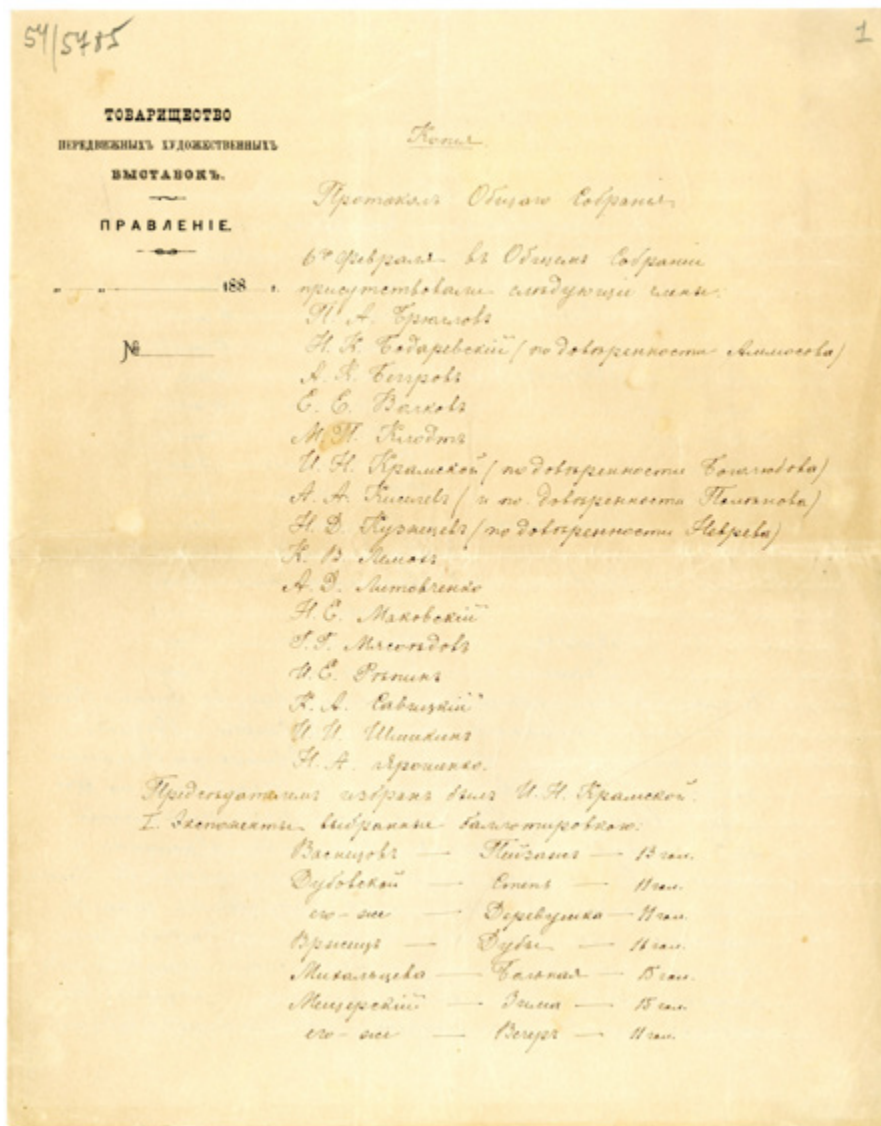 54/5785
1
ТОВАРИЩЕСТВО
ПЕРЕДВИЖНЫХЪ ХУДОЖЕСТВЕННЫХЪ
ВЫСТАВОКЪ.
ПРАВЛЕНІЕ.
„ „ 188 г.
№
Копия
Протоколъ Общаго Собранія
6го февраля въ Общемъ Собраніи
присутствовали слѣдующіе члены:
П. А. Брюлловъ
Н. К. Бодаревскій (по довѣренности Аммосова)
А. К. Беггровъ
Е. Е. Волковъ
М. П. Клодтъ
И. Н. Крамской (по довѣренности Боголюбова)
А. А. Киселевъ (и по довѣренности Полѣнова)
Н. Д. Кузнецовъ (по довѣренности Неврева)
К. В. Лемохъ
А. Д. Литовченко
Н. Е. Маковскій
Г. Г. Мясоѣдовъ
И. Е. Рѣпинъ
К. А. Савицкій
И. И. Шишкинъ
Н. А. Ярошенко.
Предсѣдателемъ избранъ былъ И. Н. Крамской.
I. Экспоненты выбранные баллотировкою:
Васнецовъ — Пейзажъ — 13 гол.
Дубовской — Степь — 11 гол.
его-же — Деревушка — 11 гол.
— Дубы —
Михальцева — Больная — 15 гол.
Мещерскій — Зима — 15 гол.
его-же — Вечеръ — 11 гол.